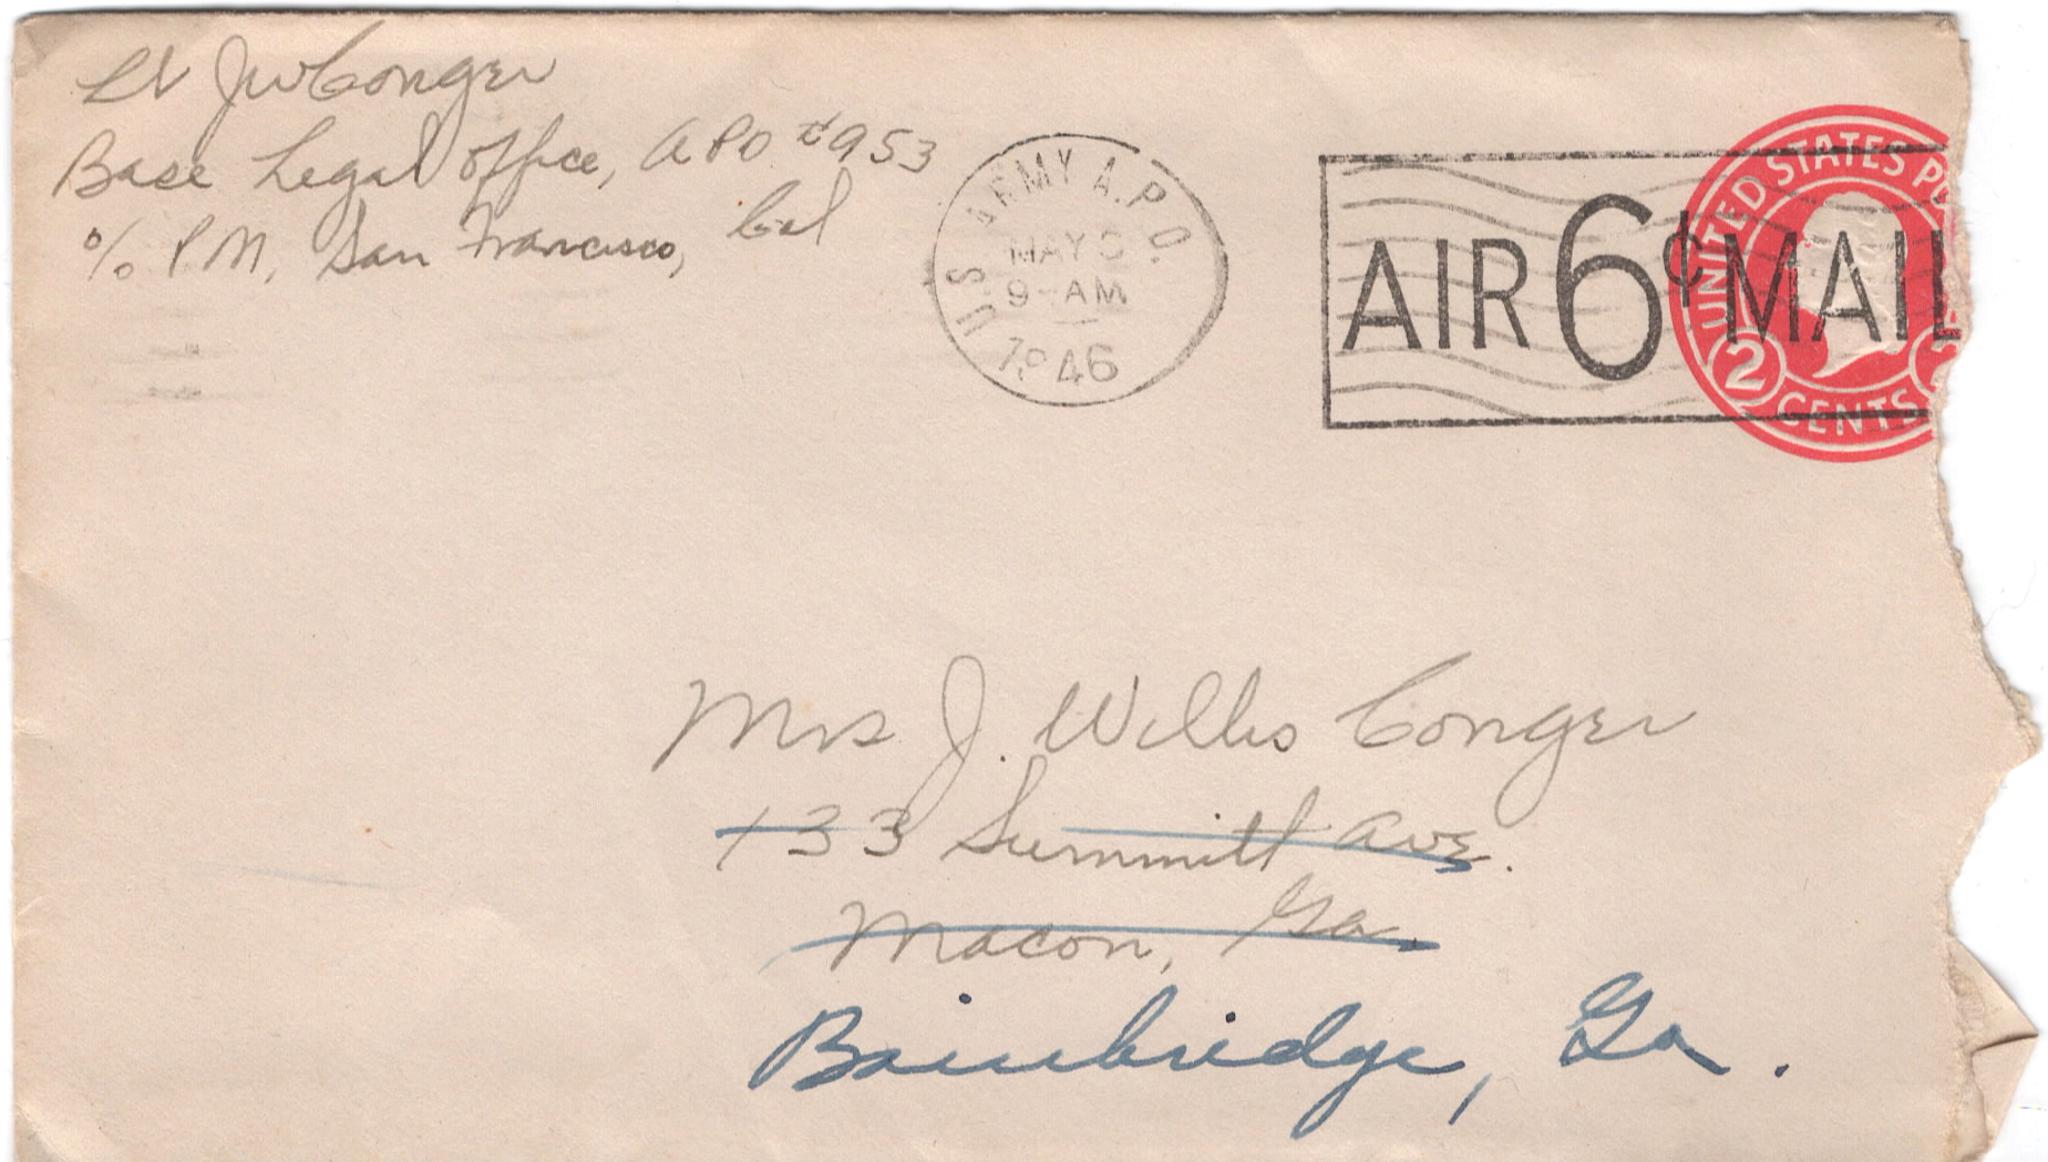 Lt JW Conger
Base Legal Office, APO #953
c/o P M, San Francisco, Cal
U.S. ARMY A.P.O.
MAY
9-AM
1946
AIR 6¢ MAIL
UNITED STATES PO
2 CENTS 2
Mrs J. Willis Conger
133 Summitt Ave.
Macon, Ga.
Bainbridge, Ga.